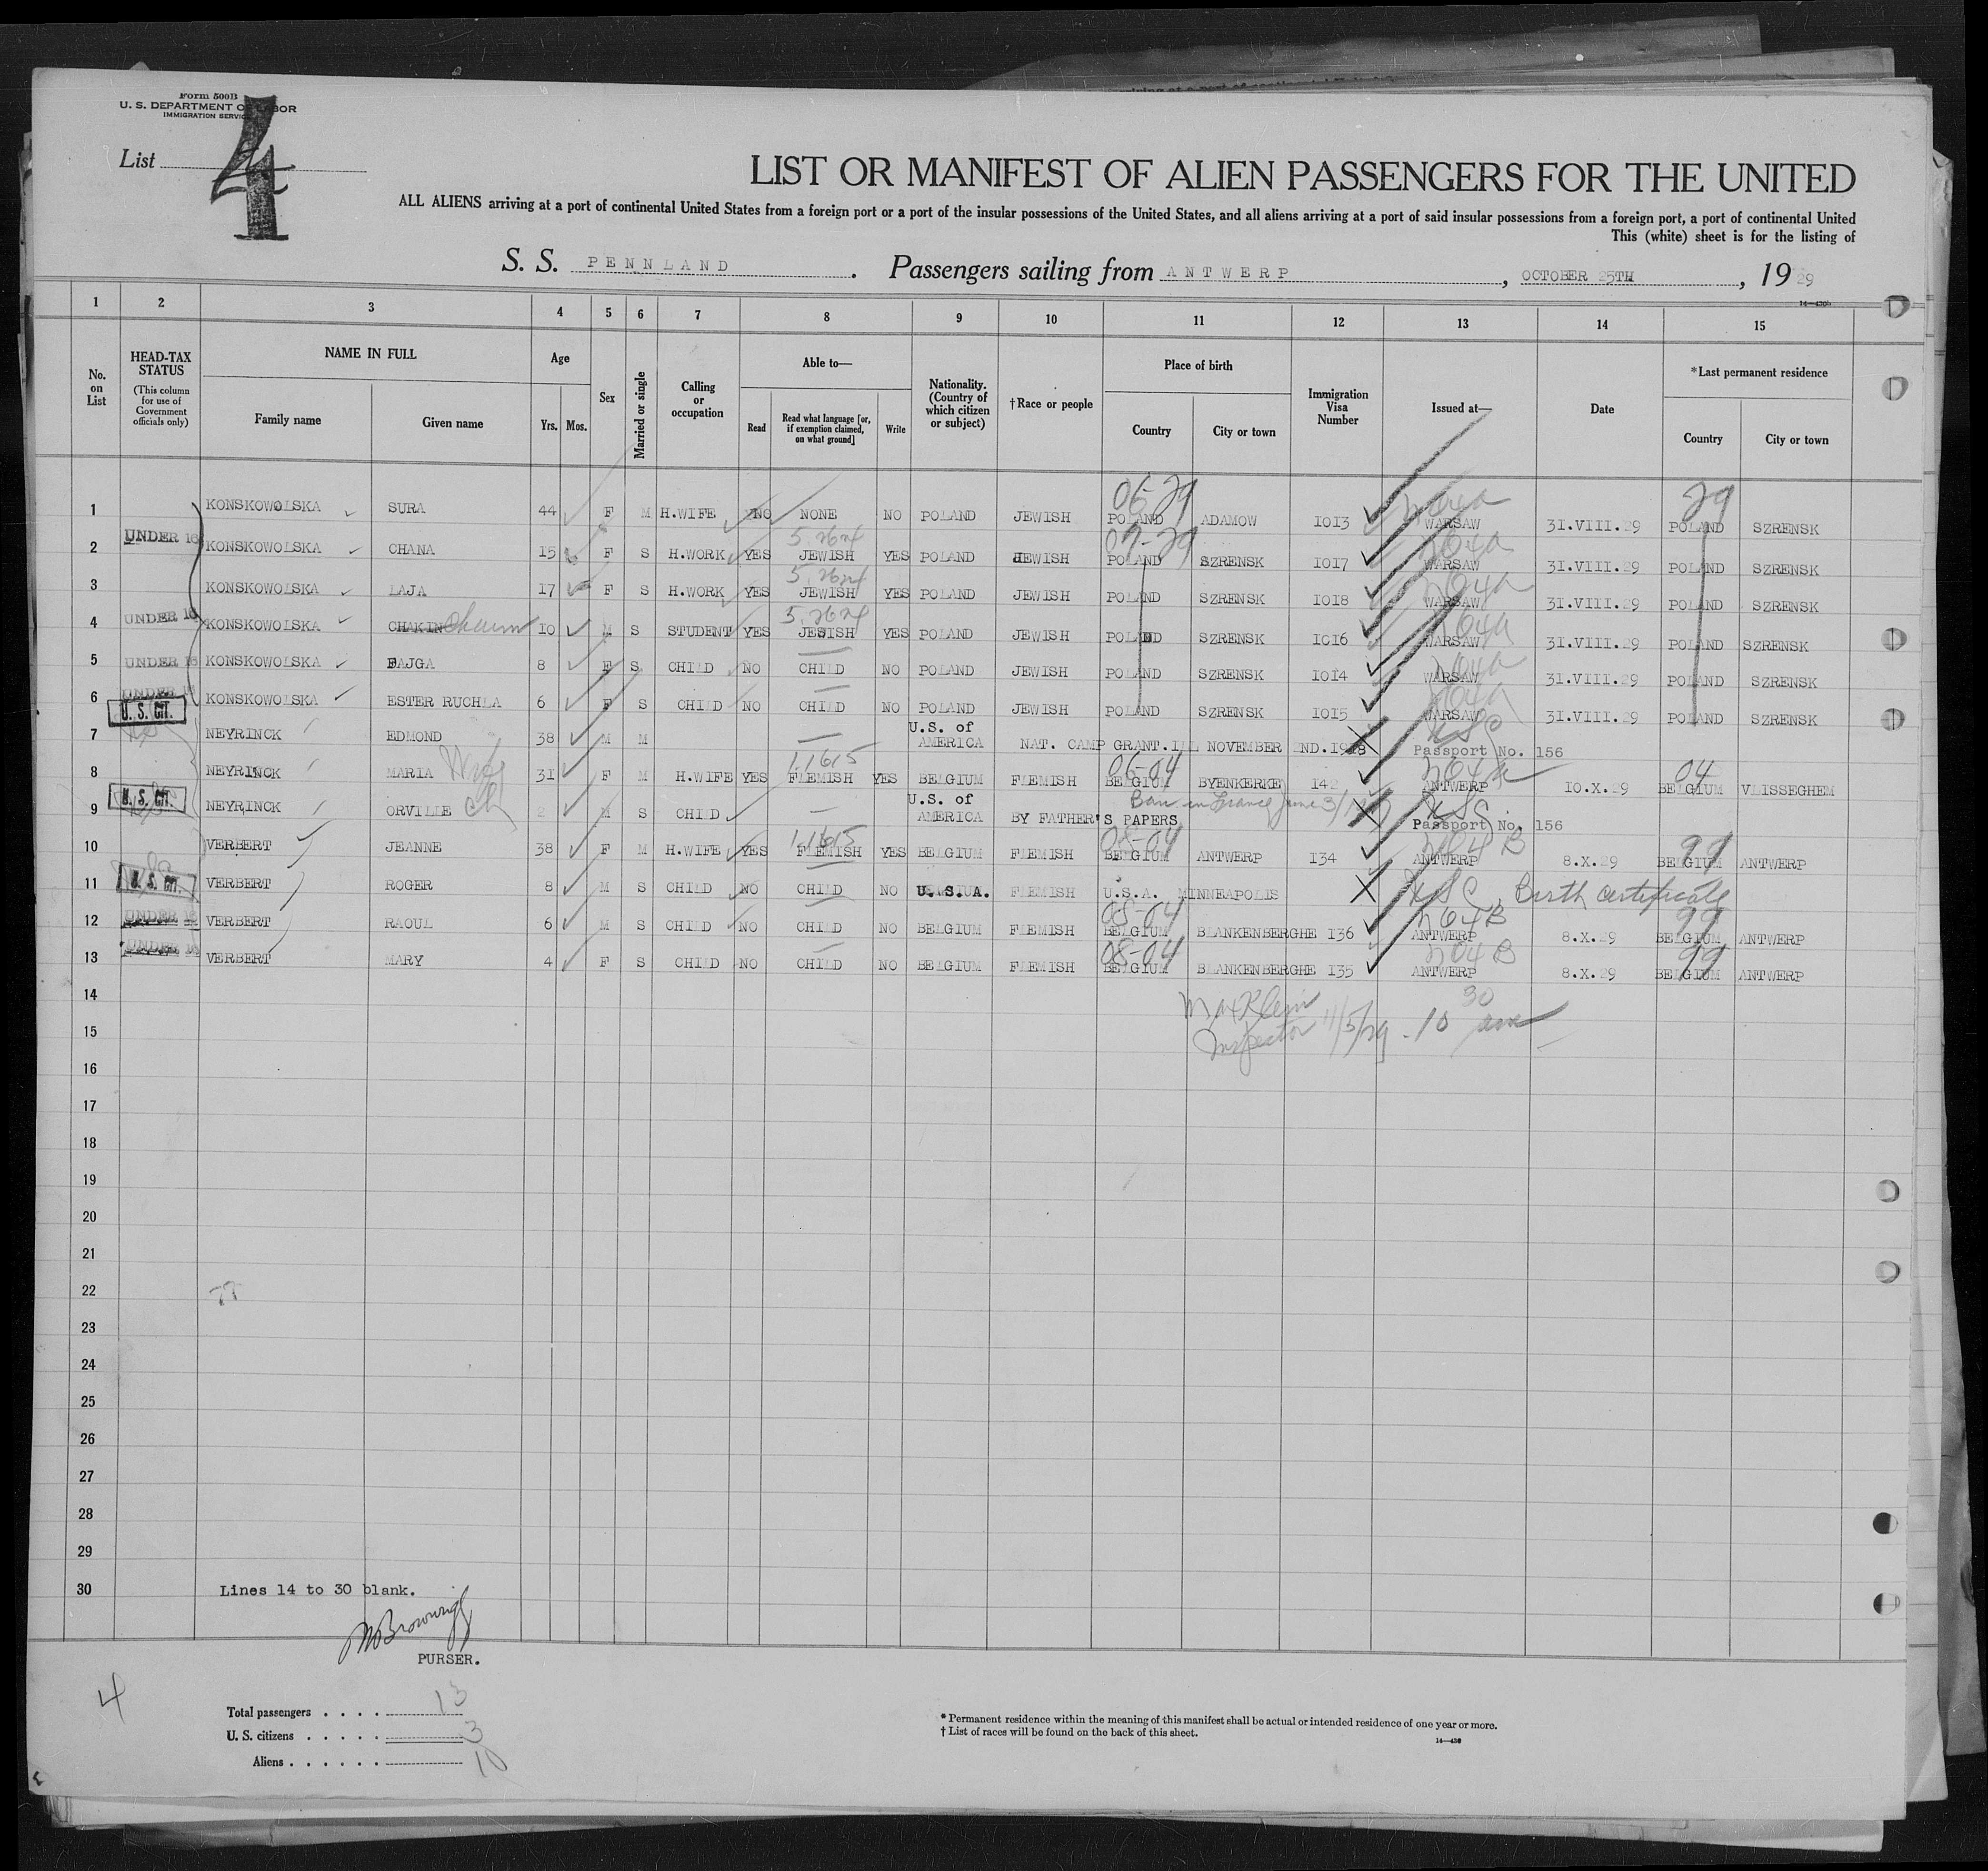 Form 500B
U. S. DEPARTMENT OF LABOR
IMMIGRATION SERVICE
List 4
LIST OR MANIFEST OF ALIEN PASSENGERS FOR THE UNITED
ALL ALIENS arriving at a port of continental United States from a foreign port or a port of the insular possessions of the United States, and all aliens arriving at a port of said insular possessions from a foreign port, a port of continental United
This (white) sheet is for the listing of
S. S. PENNLAND . Passengers sailing from ANTWERP , OCTOBER 25TH , 1929
1 2 3 4 5 6 7 8 9 10 11 12 13 14 15
No. on List
HEAD-TAX STATUS (This column for use of Government officials only)
NAME IN FULL
Family name Given name
Age
Yrs. Mos.
Sex
Married or single
Calling or occupation
Able to—
Read
Read what language [or, if exemption claimed, on what ground]
Write
Nationality. (Country of which citizen or subject)
†Race or people
Place of birth
Country City or town
Immigration Visa Number
Issued at—
Date
*Last permanent residence
Country City or town
06-29 29
1 KONSKOWOLSKA SURA 44 F M H.WIFE NO NONE NO POLAND JEWISH POLAND ADAMOW 1013 WARSAW 31.VIII.29 POLAND SZRENSK
2 UNDER 16 KONSKOWOLSKA CHANA 15 F S H.WORK YES JEWISH YES POLAND JEWISH POLAND SZRENSK 1017 WARSAW 31.VIII.29 POLAND SZRENSK
3 KONSKOWOLSKA LAJA 17 F S H.WORK YES JEWISH YES POLAND JEWISH POLAND SZRENSK 1018 WARSAW 31.VIII.29 POLAND SZRENSK
4 UNDER 16 KONSKOWOLSKA CHAKIN Chaim 10 M S STUDENT YES JEWISH YES POLAND JEWISH POLAND SZRENSK 1016 WARSAW 31.VIII.29 POLAND SZRENSK
5 UNDER 16 KONSKOWOLSKA FAJGA 8 F S CHILD NO CHILD NO POLAND JEWISH POLAND SZRENSK 1014 WARSAW 31.VIII.29 POLAND SZRENSK
6 UNDER 16 KONSKOWOLSKA ESTER RUCHLA 6 F S CHILD NO CHILD NO POLAND JEWISH POLAND SZRENSK 1015 WARSAW 31.VIII.29 POLAND SZRENSK
7 U. S. CIT. NEYRINCK EDMOND 38 M M U.S. of AMERICA NAT. CAMP GRANT.ILL NOVEMBER 2ND.1918 USC Passport No. 156
8 NEYRINCK MARIA Wife 31 F M H.WIFE YES FLEMISH YES BELGIUM FLEMISH BELGIUM BYENKERKE 142 ANTWERP 10.X.29 BELGIUM VLISSEGHEM
9 U. S. CIT. NEYRINCK ORVILLE Ch 2 M S CHILD U.S. of AMERICA BY FATHER'S PAPERS Born in France June 3/ USC Passport No. 156
10 VERBERT JEANNE 38 F M H.WIFE YES FLEMISH YES BELGIUM FLEMISH BELGIUM ANTWERP 134 ANTWERP 8.X.29 BELGIUM ANTWERP
11 U. S. CIT. VERBERT ROGER 8 M S CHILD NO CHILD NO U.S.A. FLEMISH U.S.A. MINNEAPOLIS USC Birth certificate
12 UNDER 16 VERBERT RAOUL 6 M S CHILD NO CHILD NO BELGIUM FLEMISH BELGIUM BLANKENBERGHE 136 ANTWERP 8.X.29 BELGIUM ANTWERP
13 UNDER 16 VERBERT MARY 4 F S CHILD NO CHILD NO BELGIUM FLEMISH BELGIUM BLANKENBERGHE 135 ANTWERP 8.X.29 BELGIUM ANTWERP
14 Max Klein
15 Inspector 11/5/29 - 10 30 am
16
17
18
19
20
21
22 77
23
24
25
26
27
28
29
30 Lines 14 to 30 blank.
PURSER.
4
Total passengers . . . . 13
U. S. citizens . . . . . 3
Aliens . . . . . . 10
* Permanent residence within the meaning of this manifest shall be actual or intended residence of one year or more.
† List of races will be found on the back of this sheet.